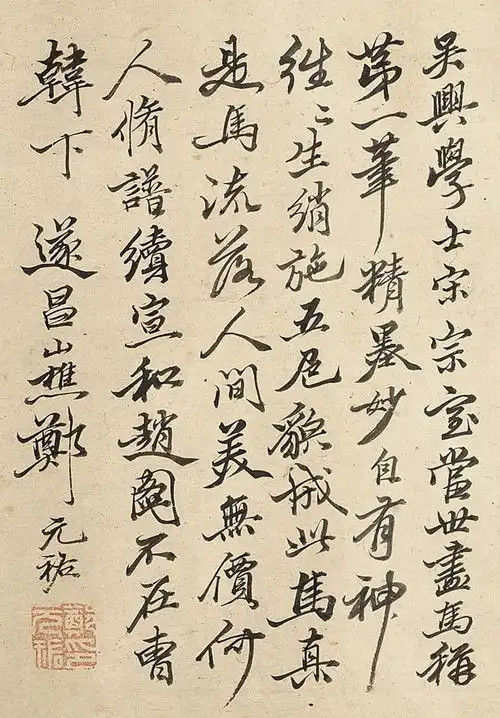 吴興學士宋宗室當世畫馬稱
第一筆精墨妙自有神
往〻生綃施五色貌成此馬真
是馬流落人間美無價何
人脩譜續宣和趙圖不在曹
韓下　遂昌山樵鄭元祐
鄭元祐